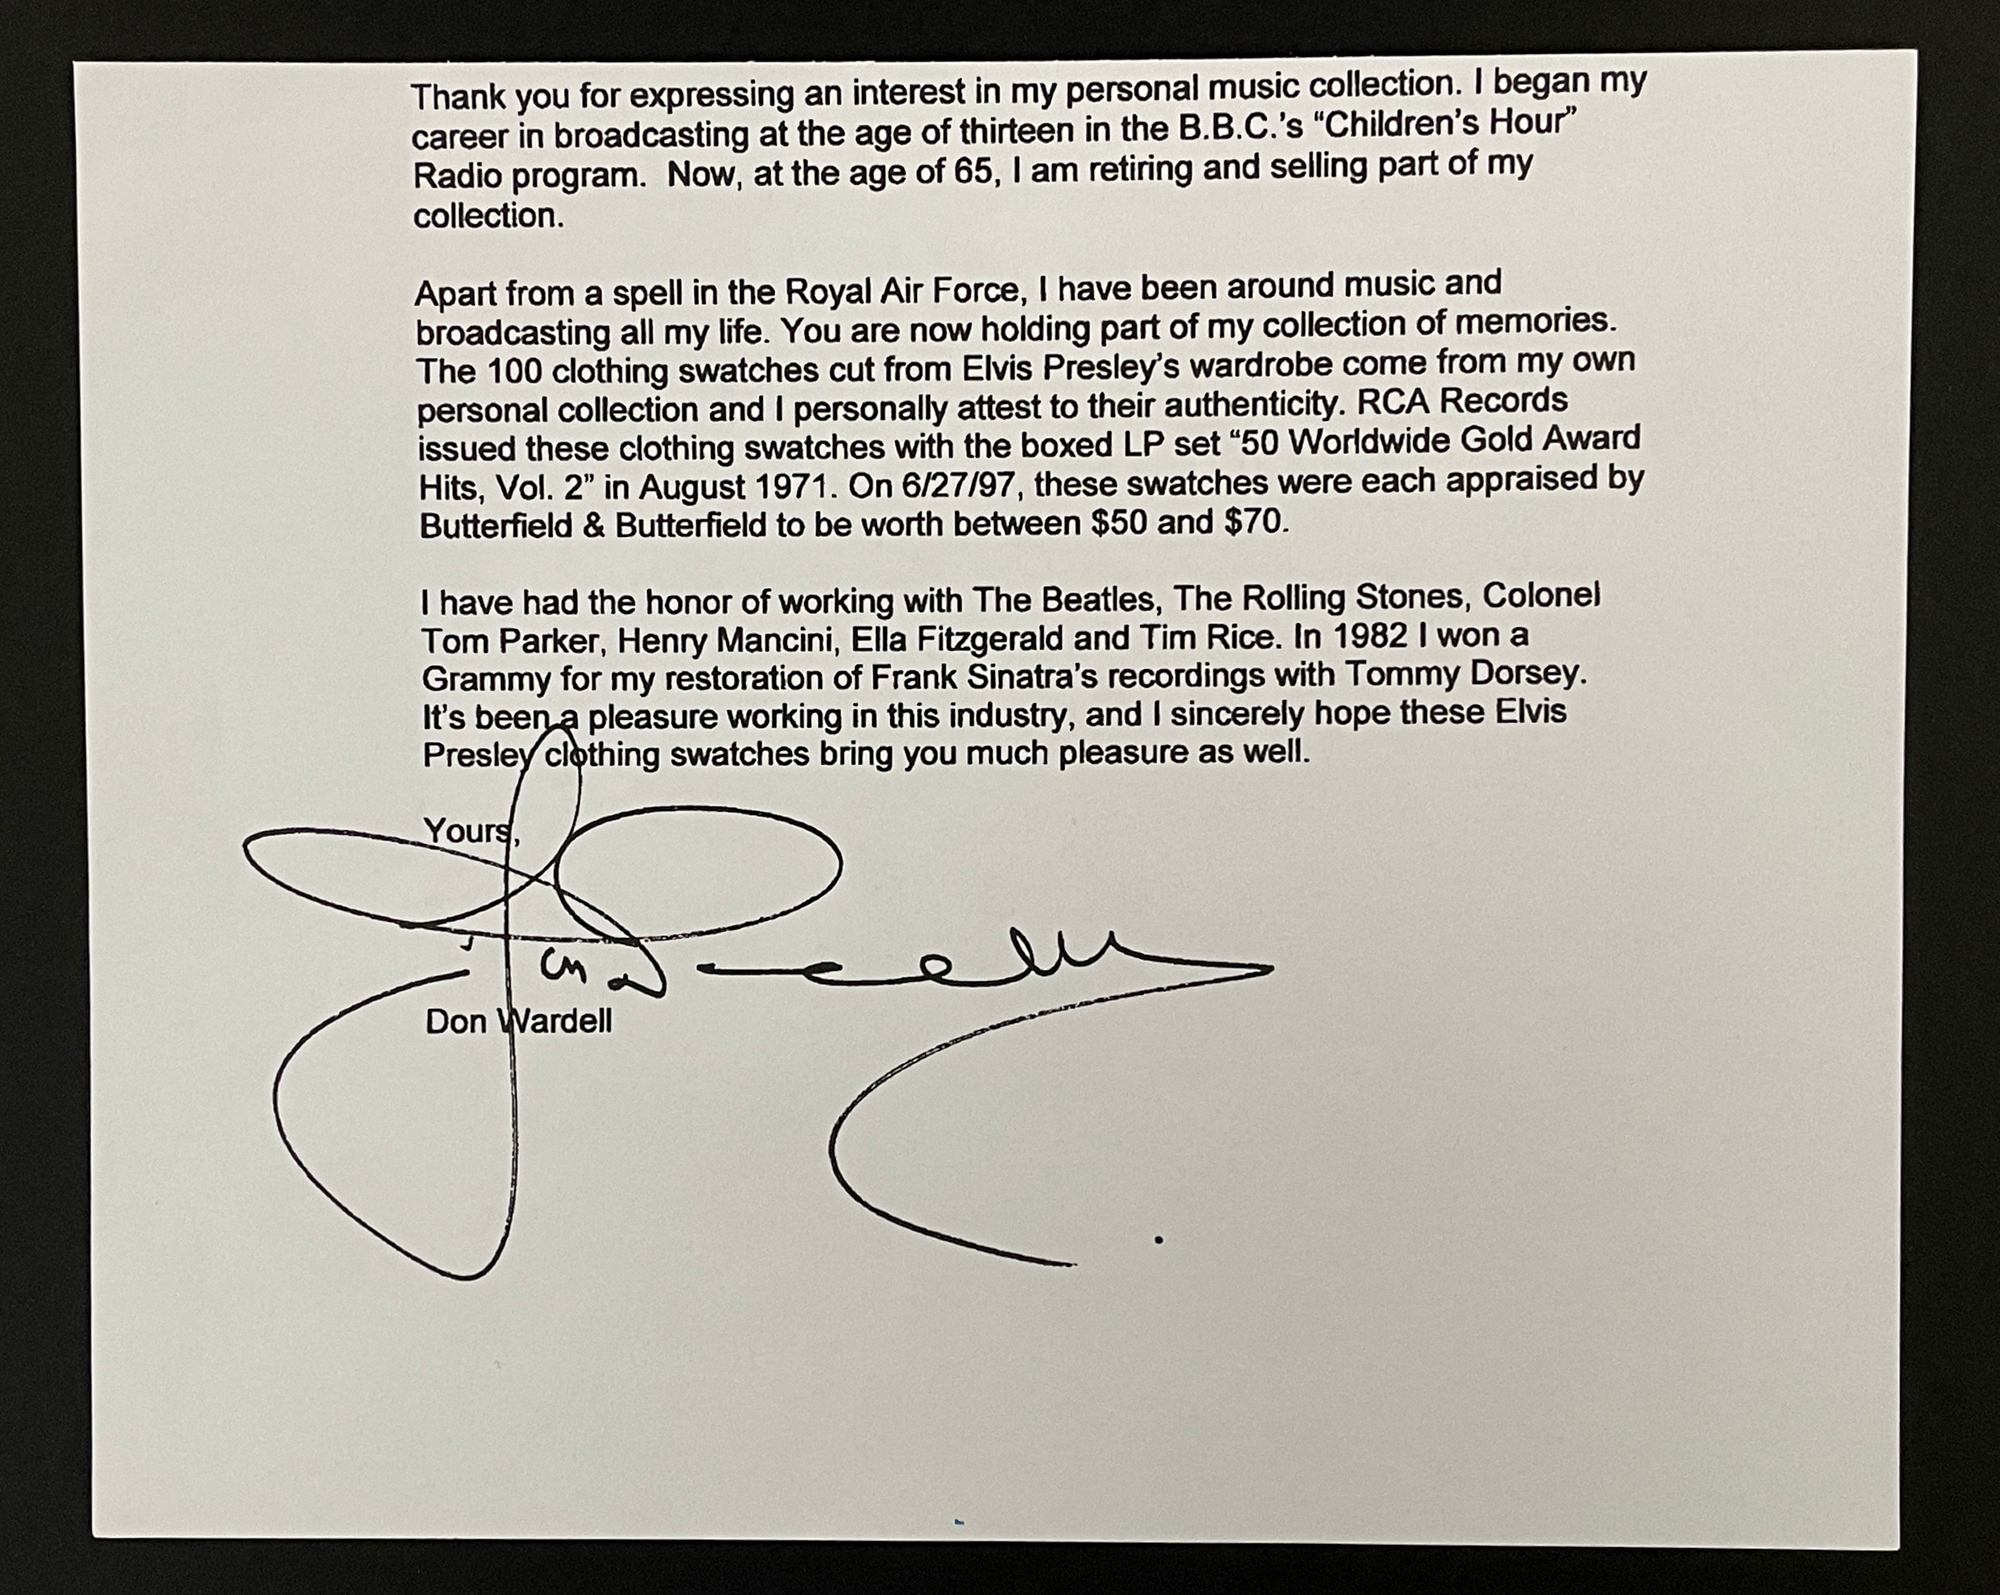 Thank you for expressing an interest in my personal music collection. I began my
career in broadcasting at the age of thirteen in the B.B.C.'s “Children's Hour”
Radio program.  Now, at the age of 65, I am retiring and selling part of my
collection.
Apart from a spell in the Royal Air Force, I have been around music and
broadcasting all my life. You are now holding part of my collection of memories.
The 100 clothing swatches cut from Elvis Presley's wardrobe come from my own
personal collection and I personally attest to their authenticity. RCA Records
issued these clothing swatches with the boxed LP set “50 Worldwide Gold Award
Hits, Vol. 2” in August 1971. On 6/27/97, these swatches were each appraised by
Butterfield & Butterfield to be worth between $50 and $70.
I have had the honor of working with The Beatles, The Rolling Stones, Colonel
Tom Parker, Henry Mancini, Ella Fitzgerald and Tim Rice. In 1982 I won a
Grammy for my restoration of Frank Sinatra's recordings with Tommy Dorsey.
It's been a pleasure working in this industry, and I sincerely hope these Elvis
Presley clothing swatches bring you much pleasure as well.
Yours,
Don Wardell